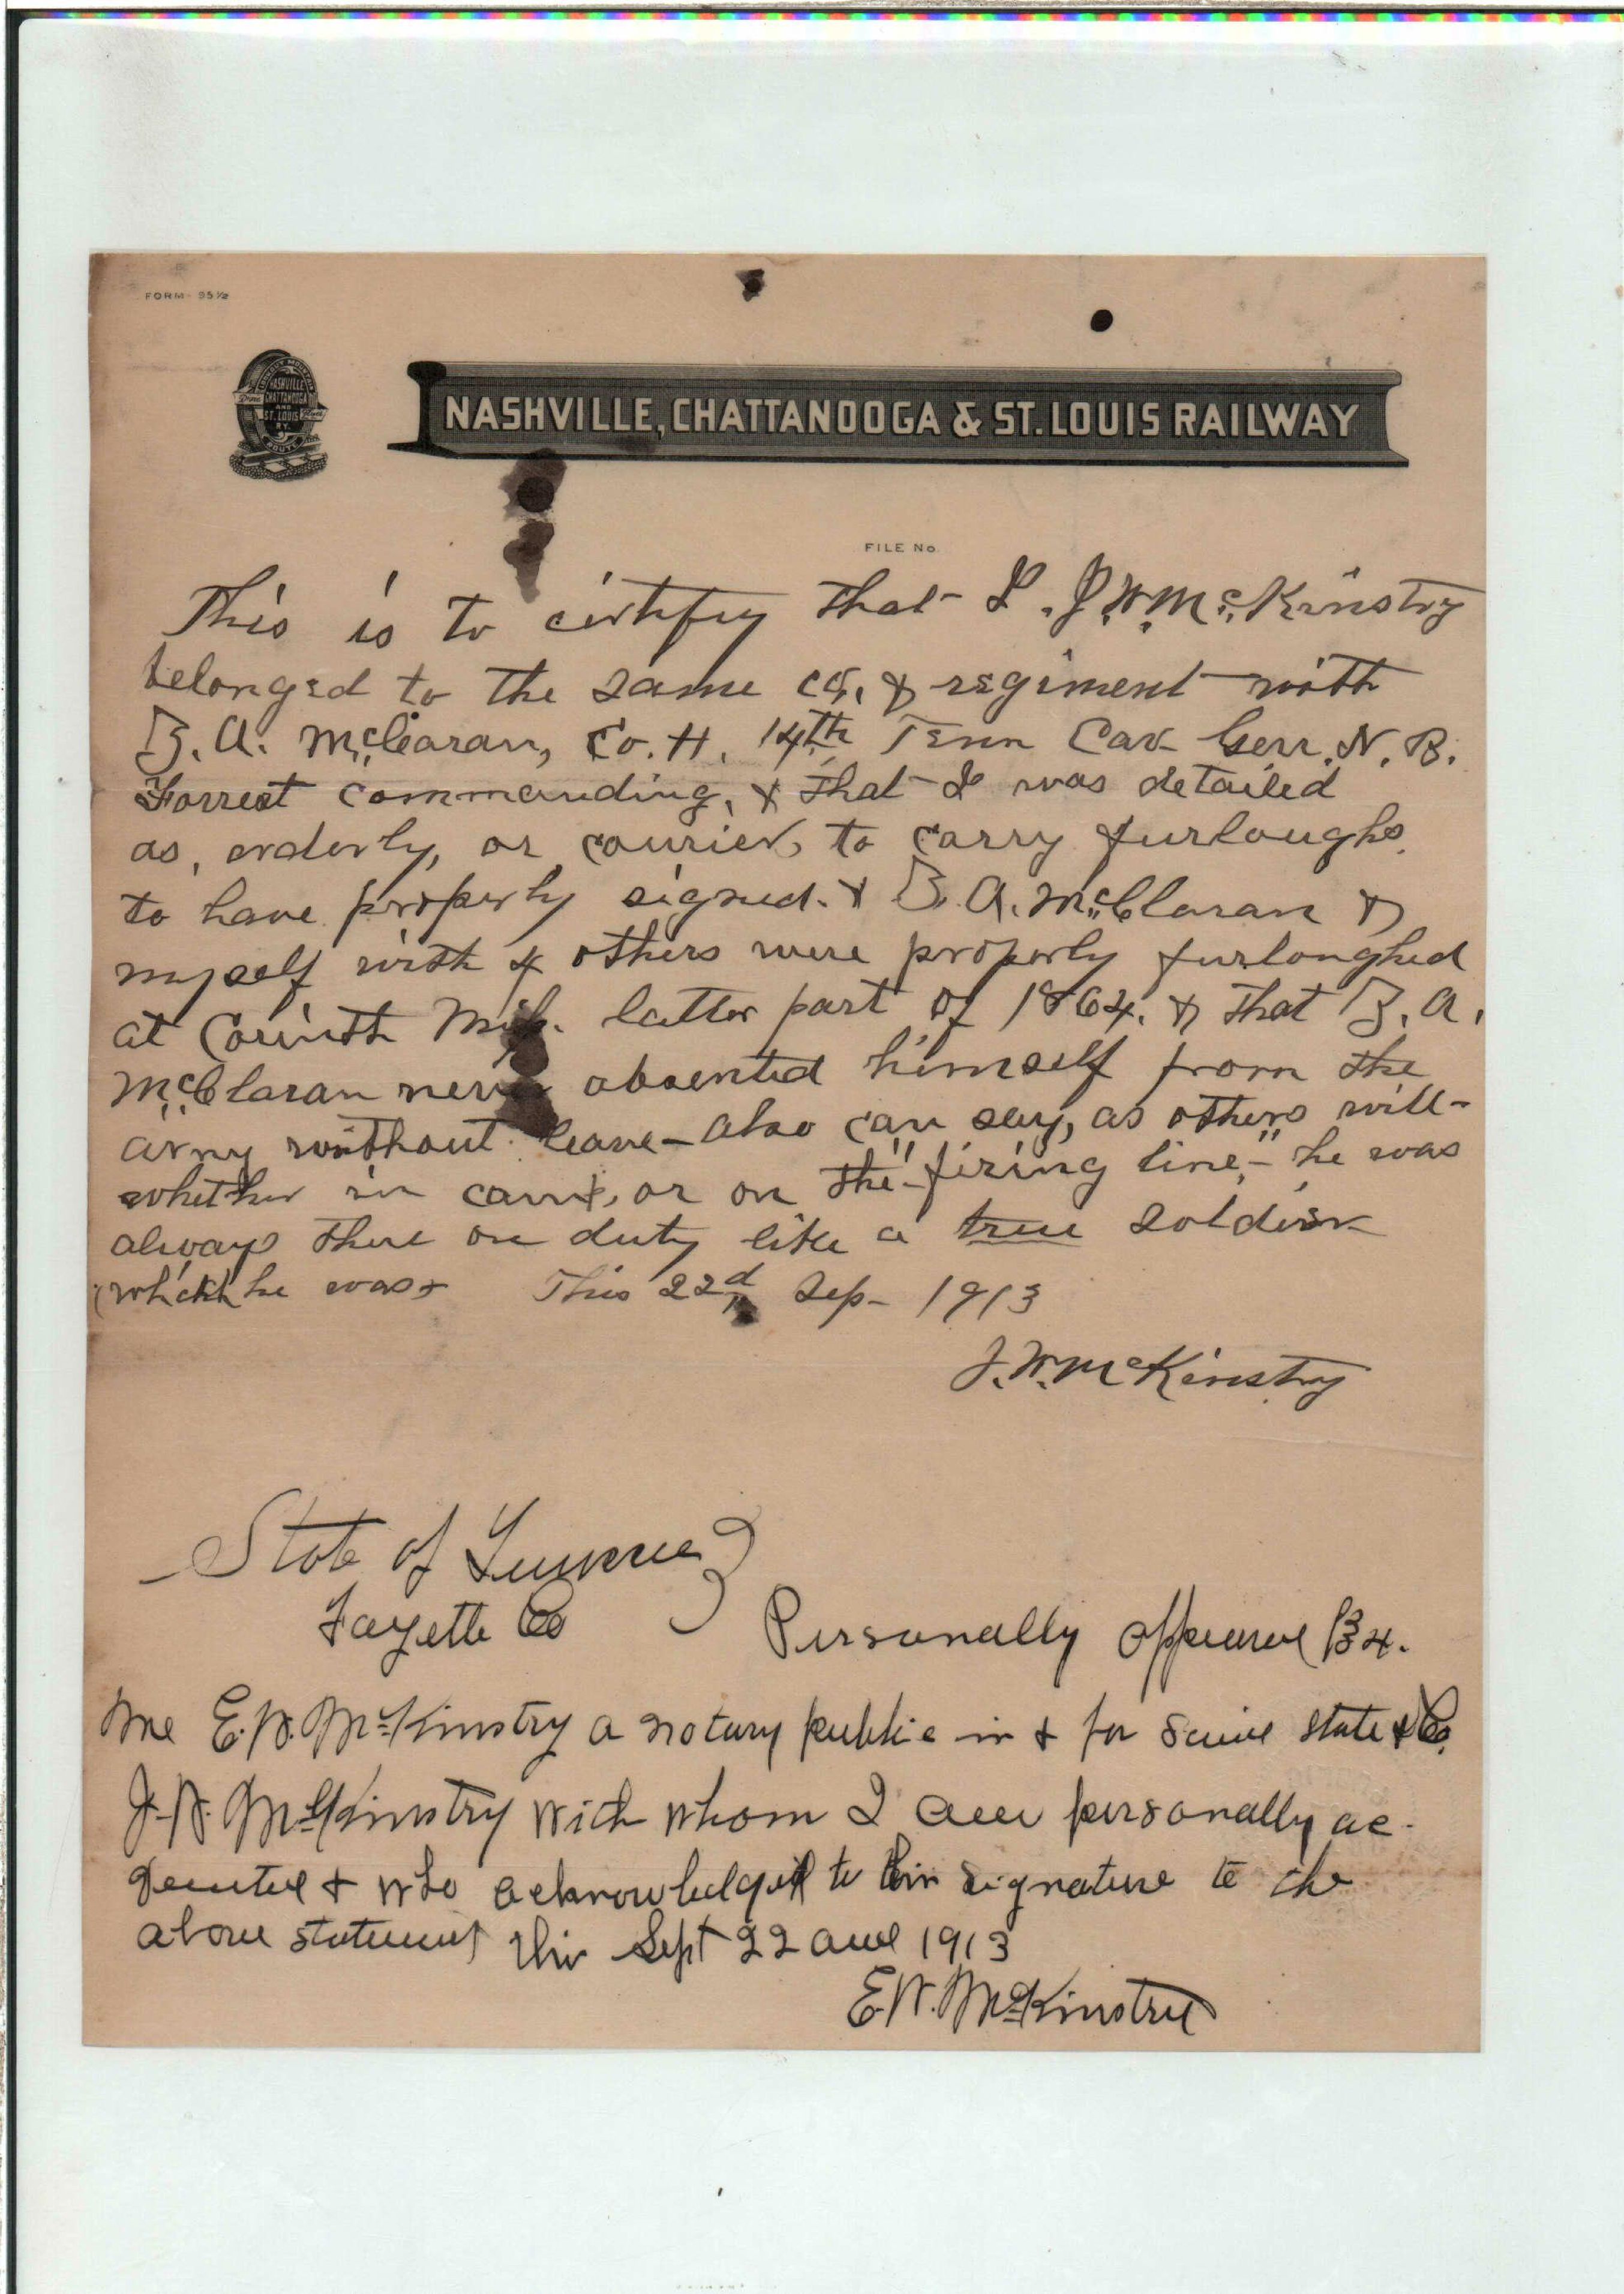 FORM 95½
NASHVILLE
CHATTANOOGA
AND
ST. LOUIS
RY.
NASHVILLE, CHATTANOOGA & ST. LOUIS RAILWAY
FILE No.
This is to certify that I. J. W. McKinstry
belonged to the same co. & regiment with
B. A. McClaran, Co. H. 14th Tenn Cav Genr. N. B.
Forrest commanding, & that I was detailed
as, orderly, or courier, to carry furloughs,
to have properly signed. & B. A. McClaran &
myself with 4 others were properly furloughed
at Corinth Miss. latter part of 1864. & that B. A.
McClaran never absented himself from the
army without leave - also can say, as others will -
whether in camp, or on the "firing line," he was
always there on duty like a true soldier
(which he was. This 22d Sep - 1913
J. W. McKinstry
State of Tennessee
Fayette Co Personally appeared B4.
me E. W. McKinstry a notary public in & for said state & Co.
J. W. McKinstry with whom I am personally ac-
quainted & who acknowledged to his signature to the
above statement this Sept 22 and 1913
E. W. McKinstry